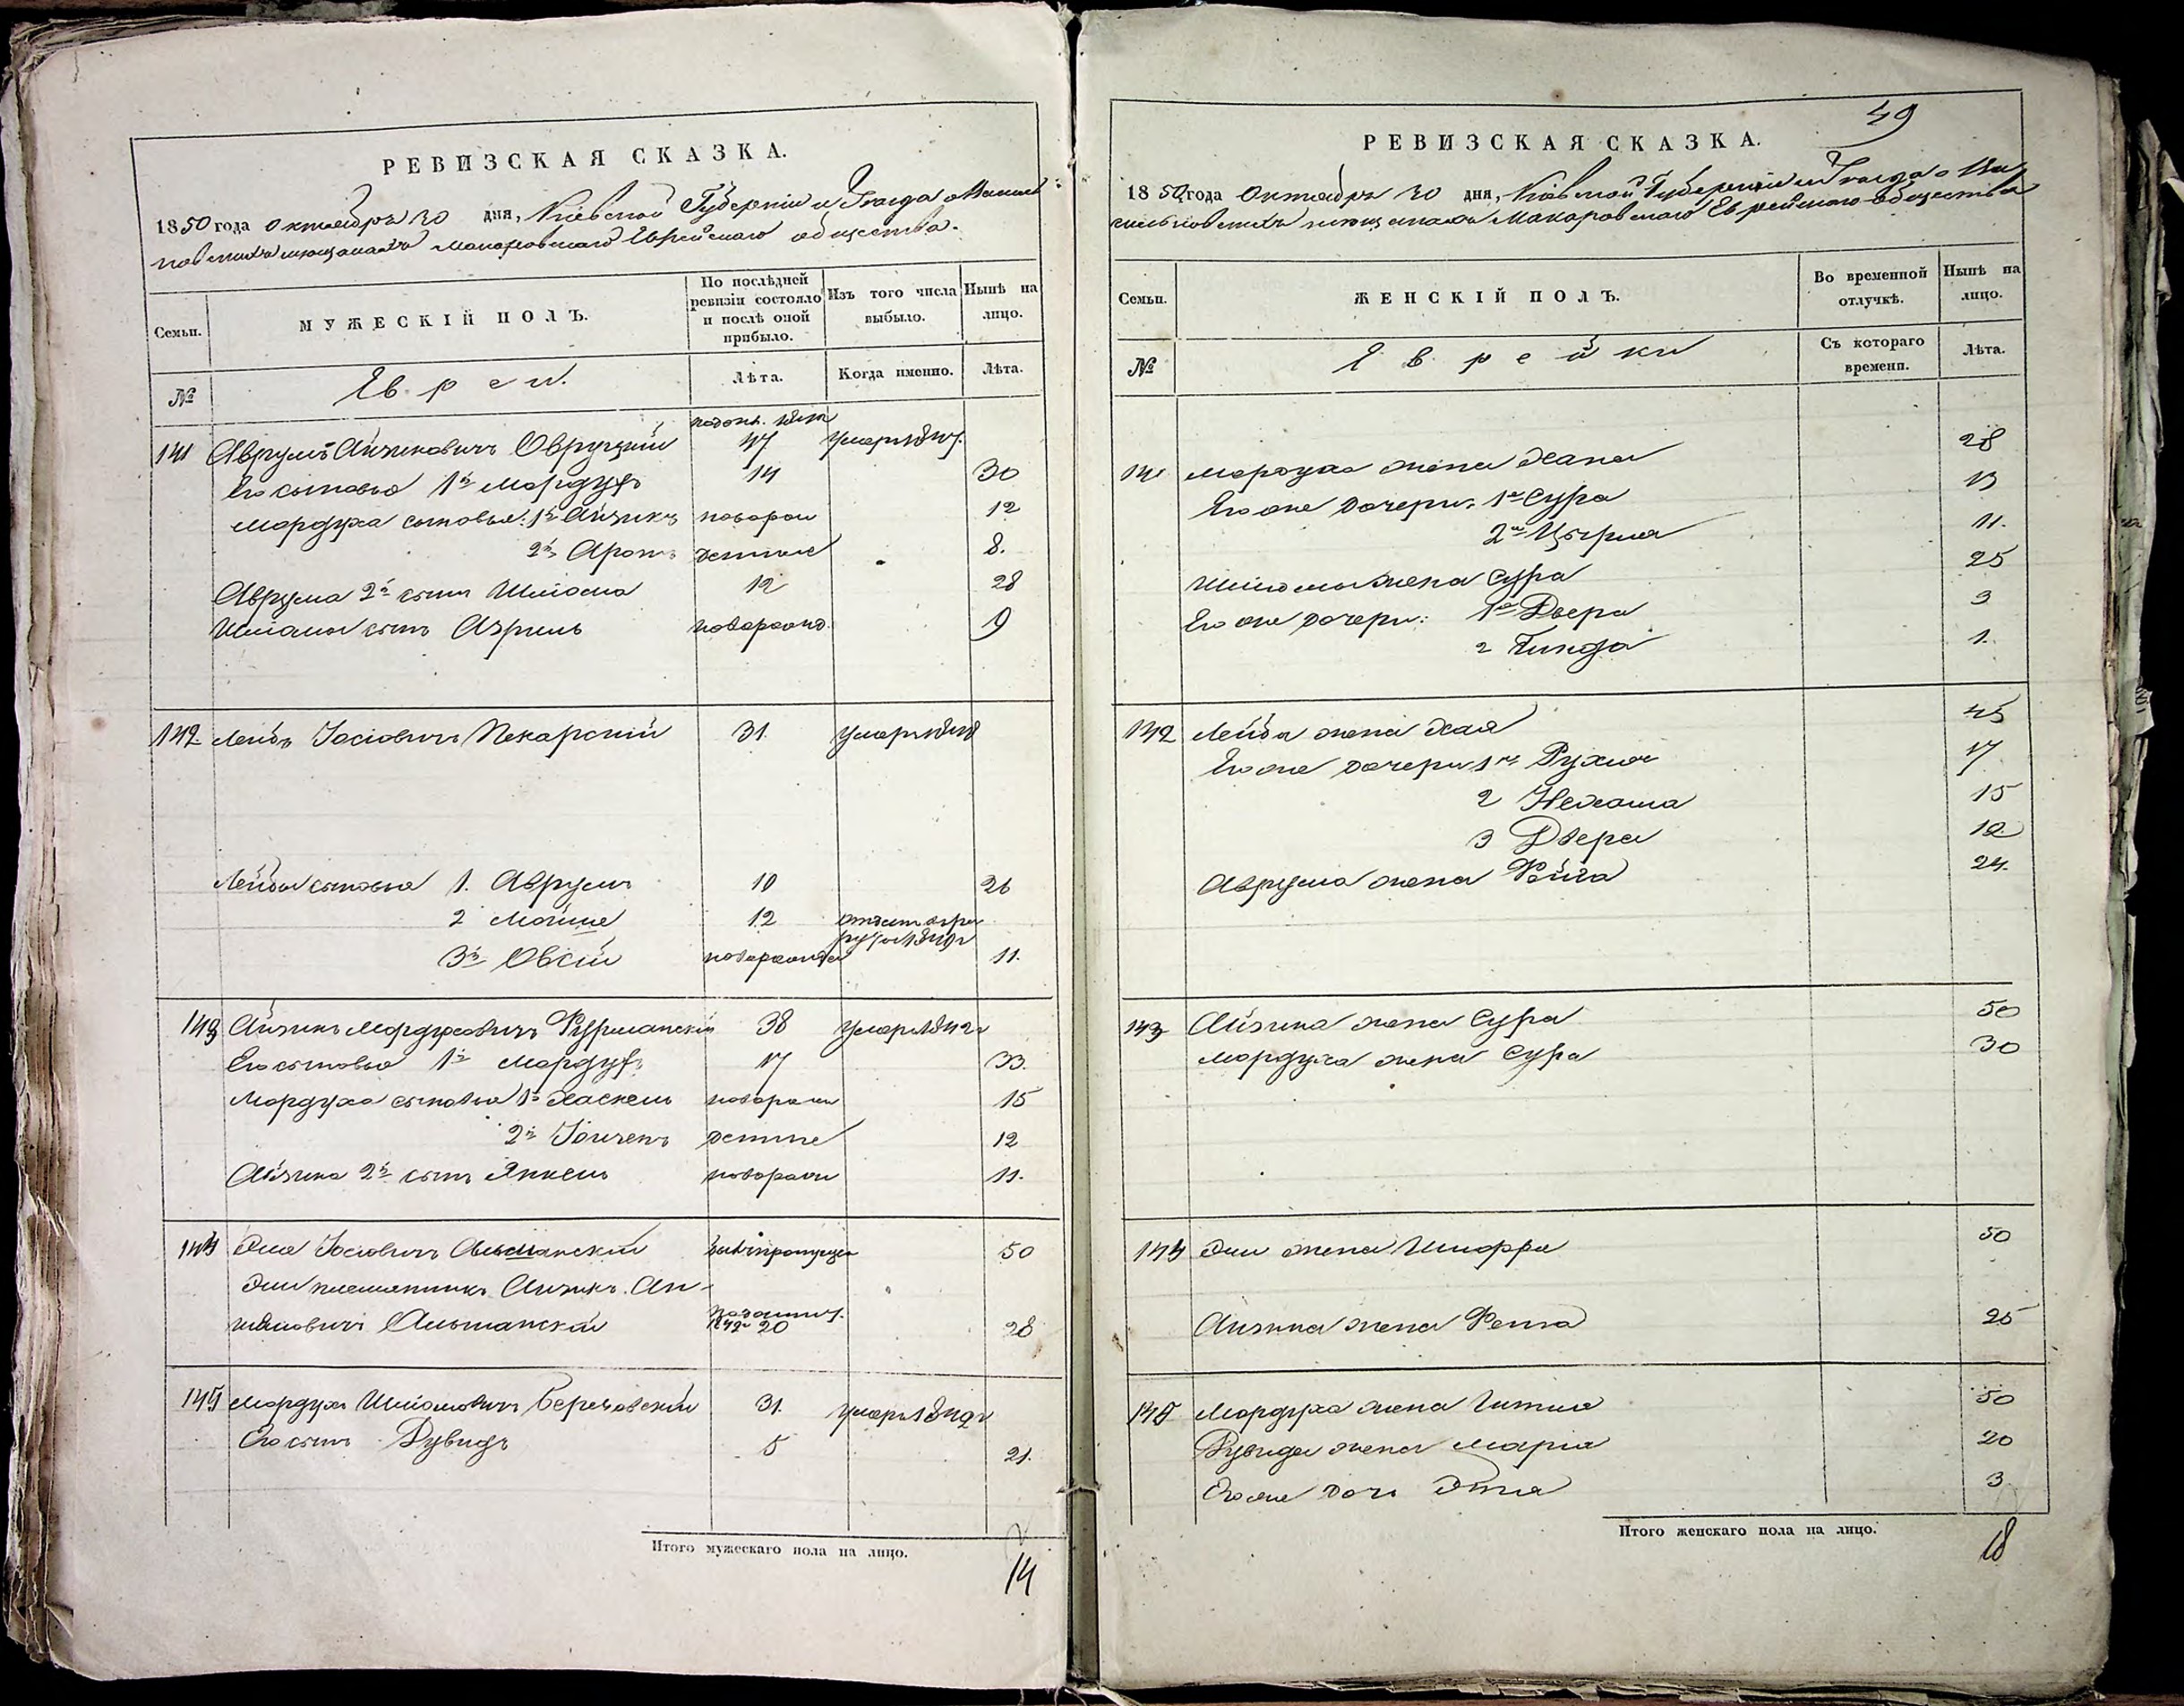 РЕВИЗСКАЯ СКАЗКА.
1850 года Октября 30 дня, Кіевской Губерніи и Уѣзда о Василь
ковскихъ мѣщанахъ Макаровскаго Еврейскаго общества.
Семьи.
МУЖЕСКІЙ ПОЛЪ.
По послѣдней ревизіи состояло и послѣ оной прибыло.
Изъ того числа выбыло.
Нынѣ на лицо.
№
Евреи.
Лѣта.
Когда именно.
Лѣта.
141 Аврумъ Айзиковичъ Овруцкій 47 умеръ
Его сыновья 1й Мордухъ 14 30
Мордуха сыновья: 1й Айзикъ новорож 12
2й Аронъ денные 8.
Аврума 2й сынъ Шліома 12 28
Шліомы сынъ Азриль новорожд. 9
142 Лейба Іосіовичъ Пекарскій 31. умеръ
Лейбы сыновья 1. Аврумъ 10 26
2 Мошше 12
3й Овсій новорожден 11.
143 Айзикъ Мордуховичъ Фурманскій 38 умеръ 1842
Его сыновья 1й Мордухъ 17 33.
Мордуха сыновья 1й Хаскель новорож 15
2й денные 12
Айзика 2й сынъ Янкель новорож 11.
144 Эля Іосіовичъ Ольшанскій былъ пропущен 50
Эли племянникъ Айзикъ
Ольшанскій 20 28
145 Мордухъ Шліомовичъ Березовскій 31. умеръ
Его сынъ Дувидъ 5 21.
Итого мужескаго пола на лицо.
14
49
РЕВИЗСКАЯ СКАЗКА.
1850 года Октября 30 дня, Кіевской Губерніи и Уѣзда о Ва
сильковскихъ мѣщанахъ Макаровскаго Еврейскаго общества
Семьи.
ЖЕНСКІЙ ПОЛЪ.
Во временной отлучкѣ.
Нынѣ на лицо.
№
Еврейки
Съ котораго времени.
Лѣта.
141 Мордуха жена Хана 28
Его же дочери: 1я Сура 13
2я 11.
Шліомы жена Сура 25
Его же дочери: 1я Двера 3
2 1.
142 Лейбы жена Хая 45
Его же дочери 1я Рухля 17
2 Нехама 15
3 Двера 12
Аврума жена Фейга 24.
143 Айзика жена Сура 50
Мордуха жена Сура 30
144 Эли жена Шифра 50
Айзика жена 25
145 Мордуха жена Гитля 50
Дувида жена Марія 20
Его же дочь Этля 3
Итого женскаго пола на лицо.
18